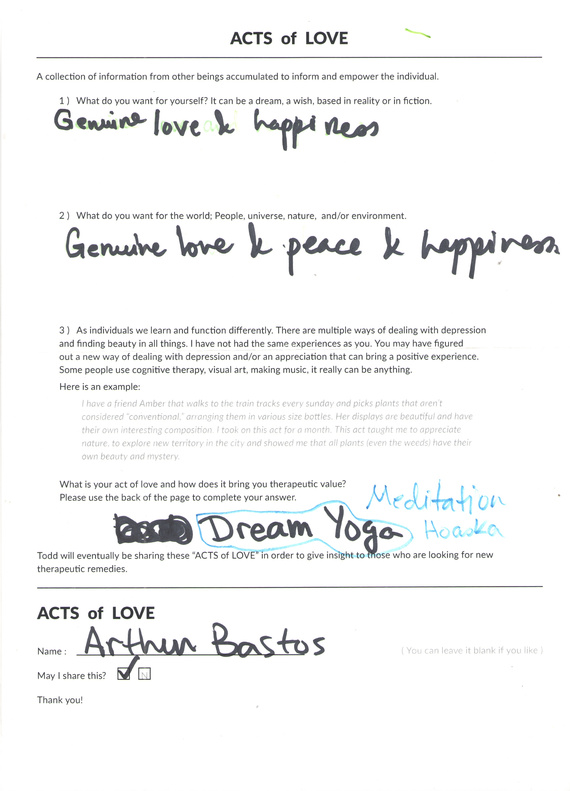 ACTS of LOVE
A collection of information from other beings accumulated to inform and empower the individual.
1 ) What do you want for yourself? It can be a dream, a wish, based in reality or in fiction.
Genuine love & happiness
2 ) What do you want for the world; People, universe, nature, and/or environment.
Genuine love & peace & happiness
3 ) As individuals we learn and function differently. There are multiple ways of dealing with depression
and finding beauty in all things. I have not had the same experiences as you. You may have figured
out a new way of dealing with depression and/or an appreciation that can bring a positive experience.
Some people use cognitive therapy, visual art, making music, it really can be anything.
Here is an example:
I have a friend Amber that walks to the train tracks every sunday and picks plants that aren't
considered "conventional," arranging them in various size bottles. Her displays are beautiful and have
their own interesting composition. I took on this act for a month. This act taught me to appreciate
nature, to explore new territory in the city and showed me that all plants (even the weeds) have their
own beauty and mystery.
What is your act of love and how does it bring you therapeutic value?
Please use the back of the page to complete your answer.
Meditation
Dream Yoga Hoaska
Todd will eventually be sharing these "ACTS of LOVE" in order to give insight to those who are looking for new
therapeutic remedies.
ACTS of LOVE
Name : Arthur Bastos ( You can leave it blank if you like )
May I share this? Y N
Thank you!